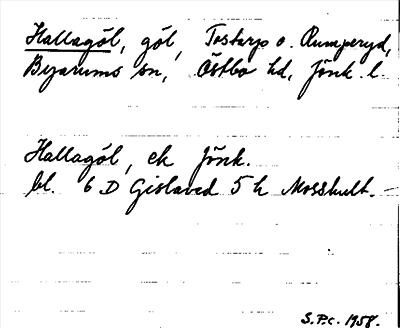 Hallagöl, göl, Tostarp o. Rumperyd,
Byarums sn, Östbo hd, Jönk. l.
Hallagöl, ek Jönk.
bl. 6 D Gislaved 5 h Mosshult.
S.P.c. 1958.